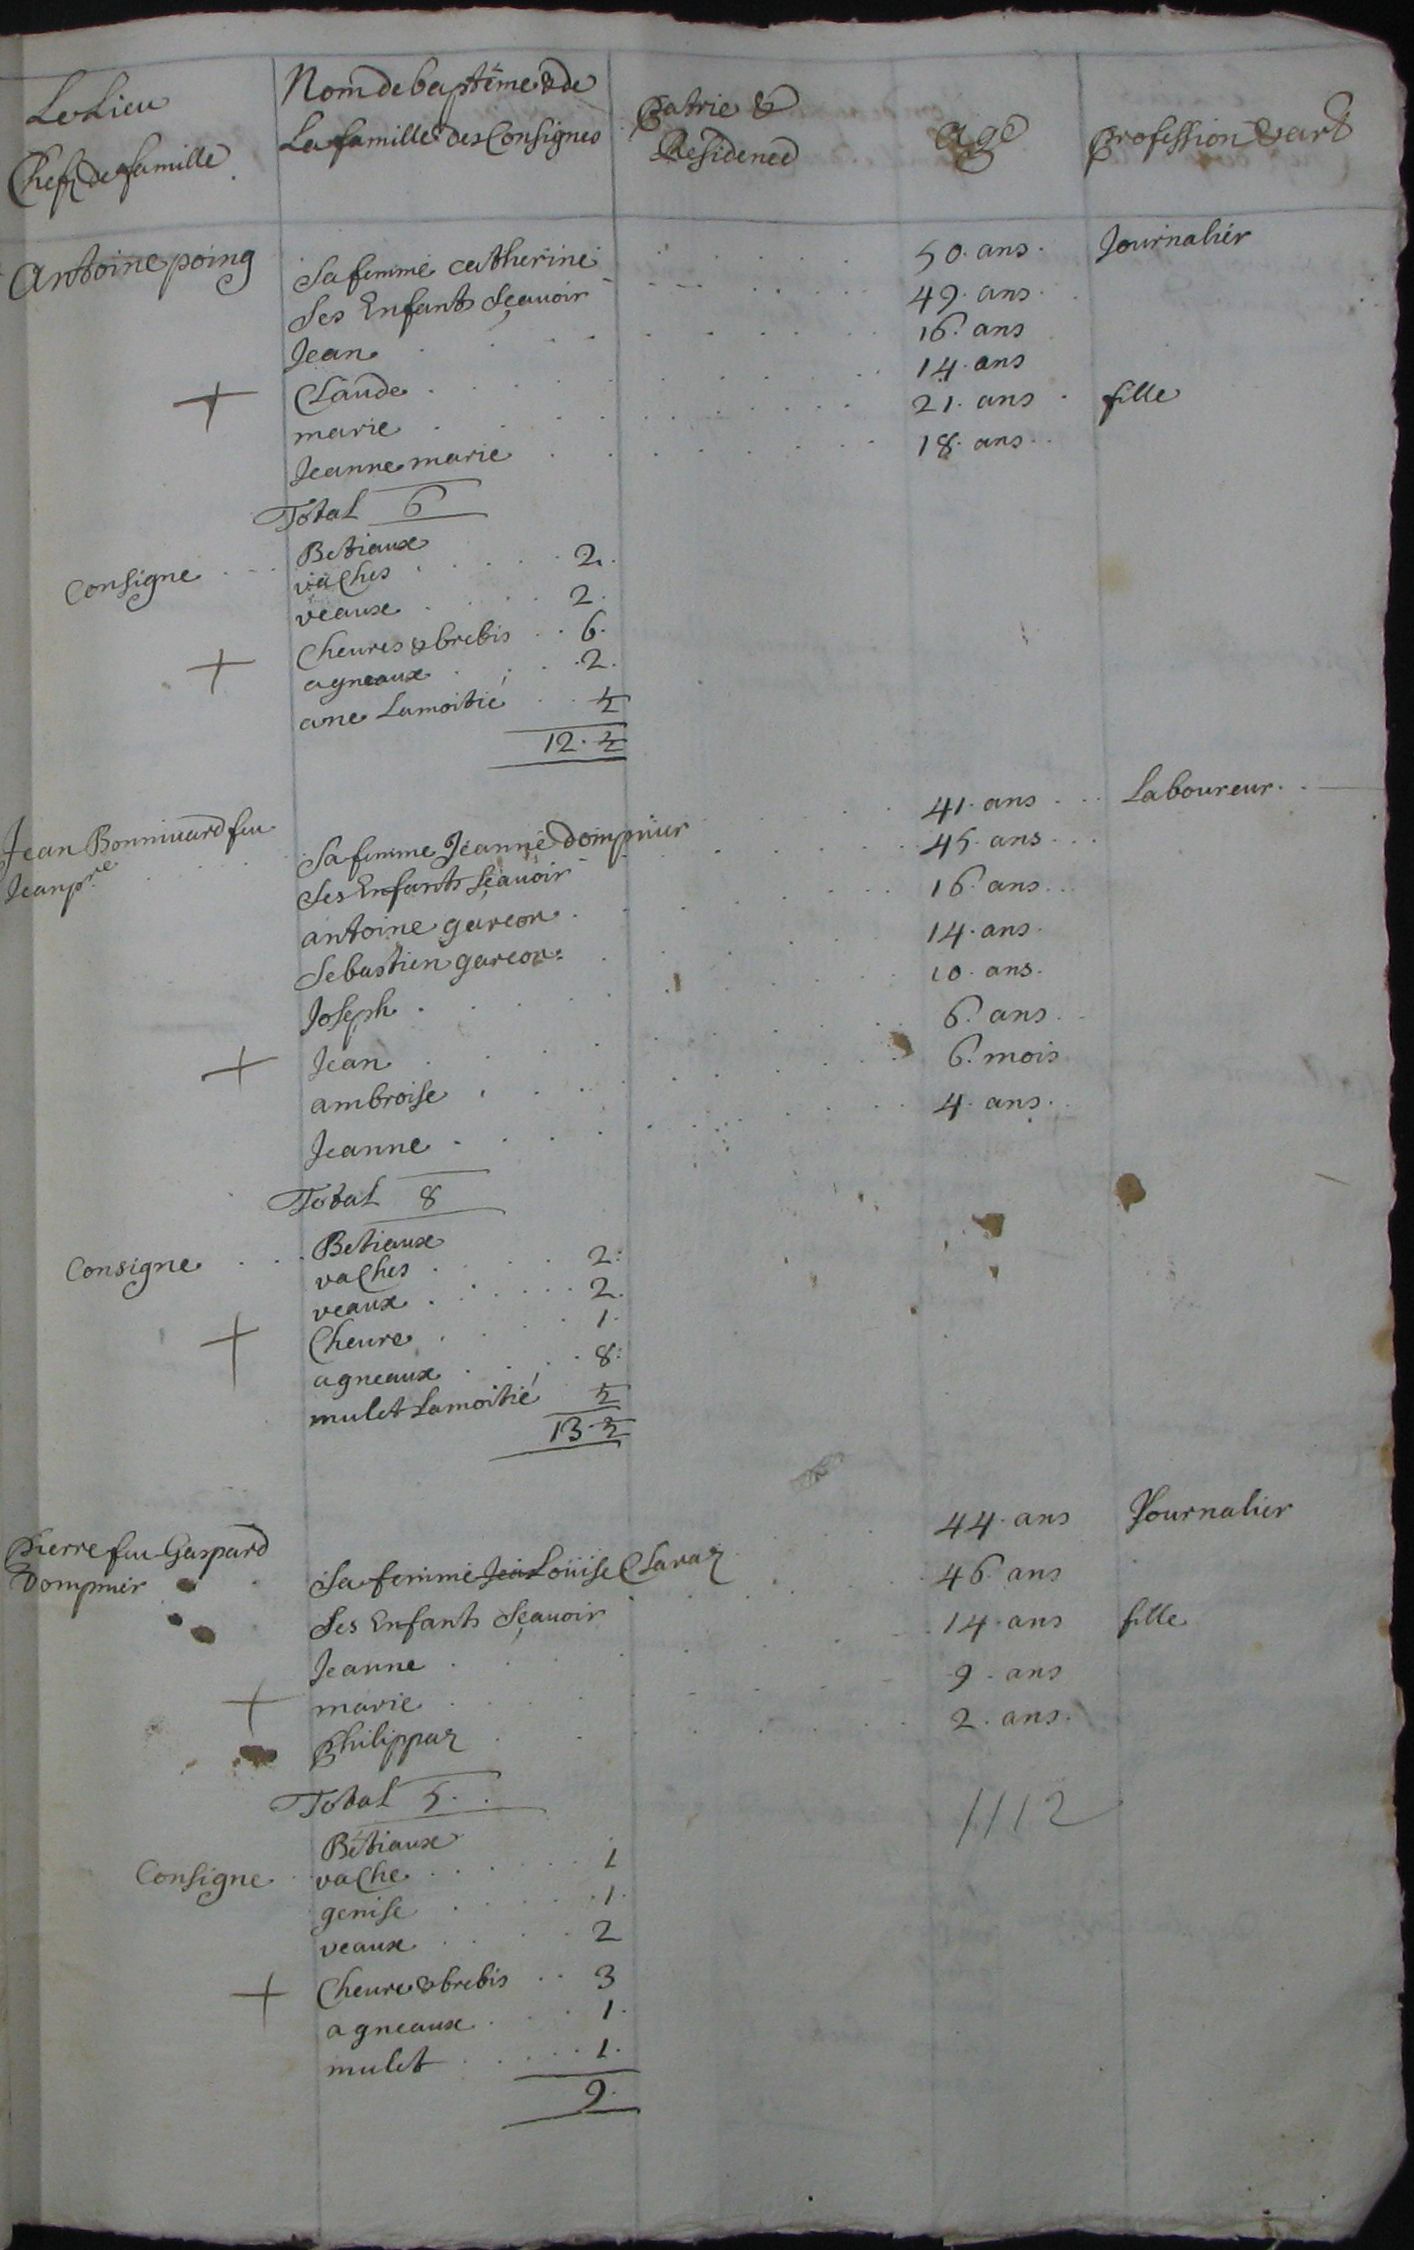 Le Lieu
Chefz de famille
Nom de baptême & de
La famille des Consignes
patrie &
Residence
age
profession & art
Antoine poing 50. ans. Journalier
Sa femme catherine 49. ans.
Ses Enfants Sçauoir
Jean 16. ans
Claude 14. ans
marie 21. ans. fille
Jeanne marie 18. ans.
Total 6
Consigne Betiaux
vaches 2.
veaux 2.
Cheures & brebis 6.
agneaux 2.
ane La moitié ½
12. ½
Jean Bonniuard feu 41. ans Laboureur.
Jean p.re
Sa femme Jeanne Dompnier 45. ans
Ses Enfants Sçauoir
antoine garcon 16. ans
Sebastien garcon: 14. ans.
Joseph 10. ans.
Jean 6. ans
ambroise 6. mois
Jeanne 4. ans.
Total 8
Consigne Betiaux
vaches 2:
veaux 2.
Cheure 1.
agneaux 8:
mulet La moitié ½
13. ½
Pierre feu Gaspard 44. ans Journalier
Dompnier
Sa femme Louise Claraz 46 ans
Ses Enfants Sçauoir
Jeanne 14. ans fille
marie 9. ans
Philippaz 2. ans.
Total 5.
1112
Betiaux
Consigne vache 1
genise 1.
veaux 2
Cheure & brebis 3
agneaux 1.
mulet 1.
9.